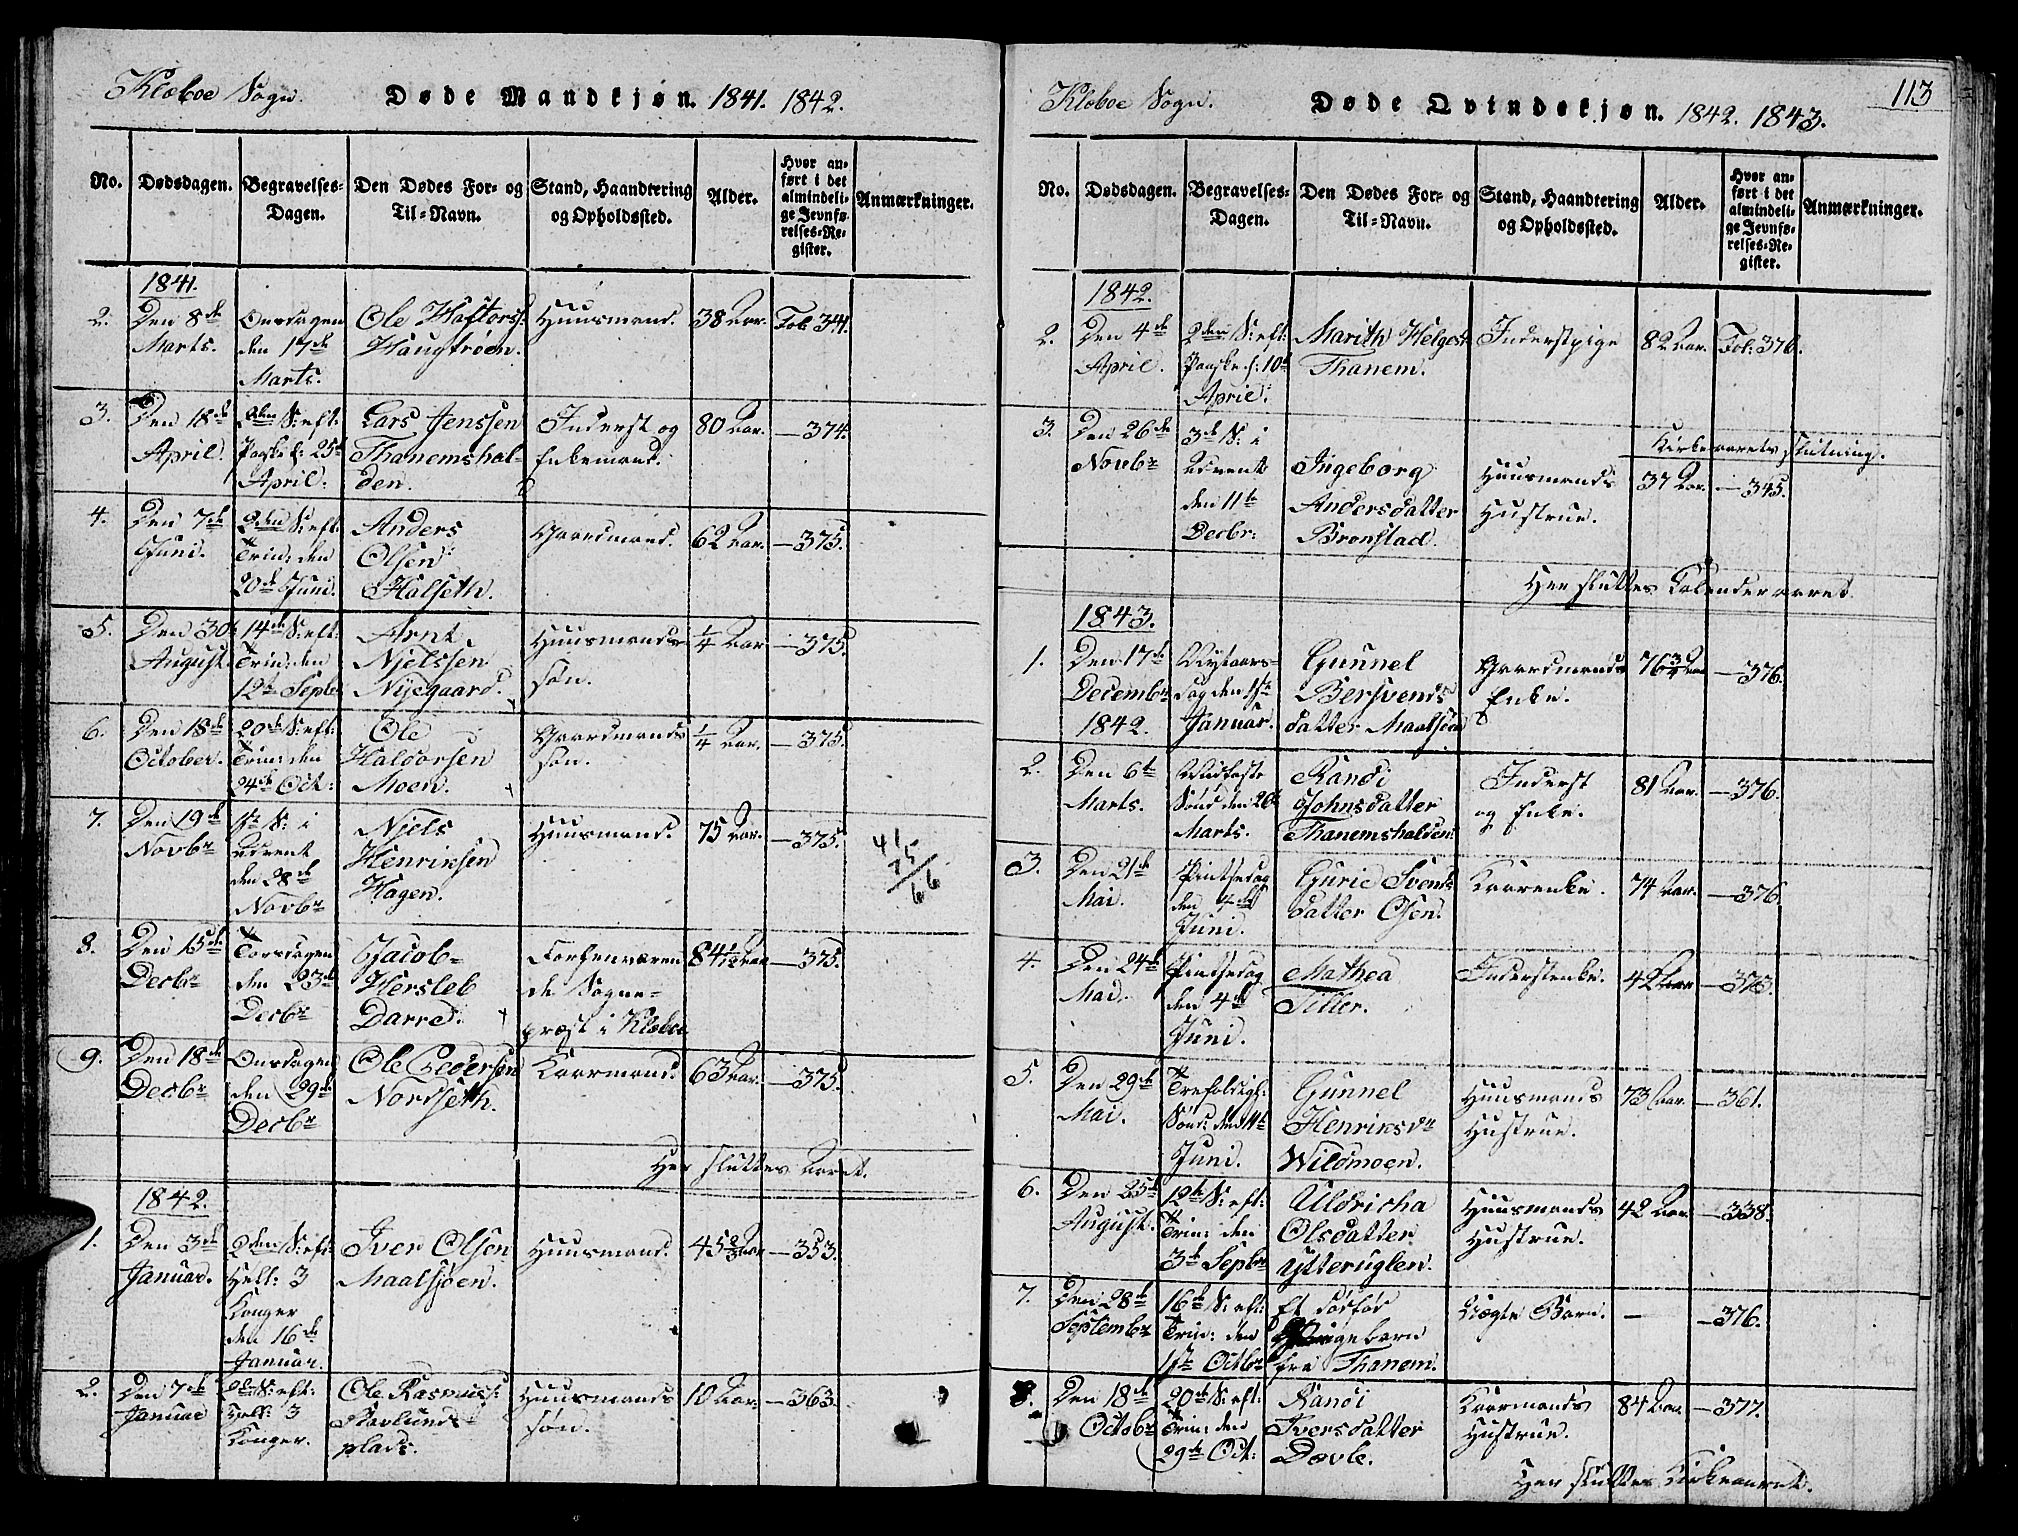 Klæboe Sogn.
Døde Mandkjøn. 1841. 1842.
No.
Dødsdagen.
Begravelses-
Dagen.
Den Dødes For- og
Til-Navn.
Stand, Haandtering
og Opholdssted.
Alder.
Hvor an-
ført i det
almindeli-
ge Jevnfø-
relses-Re-
gister.
Anmærkninger.
1841.
2.
Den 8de
Marts.
Onsdagen
den 17de
Marts.
Ole Haftors:
Haugtrøen.
Huusmand.
38 Aar.
Fol: 344.
3.
Den 18de
April.
2den S: eft:
Paaske f: 25de
April.
Lars Jenssen
Thanemshal-
den.
Inderst og
Enkemand.
80 Aar.
—374.
4.
Den 7de
Juni.
2den S: eft:
Trin: den
20de Juni.
Anders
Olsen
Halseth.
Gaardmand.
62 Aar.
—375.
5.
Den 30te
August.
14de S: eft:
Trin: den
12te Septbr
Arnt
Njelssen
Nyegaard.
Huusmands
søn.
1/4 Aar
—375.
6.
Den 18de
October.
20de S: eft:
Trin: den
24de Oct:
Ole
Haldorsen
Moen.
Gaardmands
søn.
1/4 Aar.
—375.
7.
Den 19de
Novbr
1ste S: i
Advent
den 28de
Novbr
Njels
Henriksen
Hagen.
Huusmand.
75 Aar.
—375.
41
25
66
8.
Den 15de
Decbr
Torsdagen
den 23de
Decbr
Jacob
Hersleb
Darre.
Forhenværen
de Sogne-
præst i Klæboe
84 1/12 Aar
—375.
9.
Den 18de
Decbr
Onsdagen
den 29de
Decbr
Ole Pedersøn
Nordseth.
Kaarmand.
63 Aar.
—375.
Her sluttes Aaret.
1842.
1.
Den 3de
Januar.
2den S: eft:
Hell: 3
Konger
den 16de
Januar.
Iver Olsen
Maalsjøen.
Huusmand.
45 2/3 Aar
—353.
2.
Den 7de
Januar
2den S: eft:
Hell: 3
Konger.
Ole Rasmuss:
Haavlunds
plads.
Huusmands
søn.
10 Aar.
—363.
113
Klæboe Sogn.
Døde Qvindekjøn. 1842. 1843.
No.
Dødsdagen.
Begravelses-
Dagen.
Den Dødes For- og
Til-Navn.
Stand, Haandtering
og Opholdssted.
Alder.
Hvor an-
ført i det
almindeli-
ge Jevnfø-
relses-Re-
gister.
Anmærkninger.
1842.
2.
Den 4de
April.
2den S: eft:
Paaske f: 10de
April.
Marith Helgesd:
Thanem.
Inderstpige
82 Aar.
Fol: 376.
3.
Den 26de
Novbr
3de S: i
Advent
den 11te
Decbr:
Ingeborg
Andersdatter
Brønstad.
Huusmands
Hustrue.
Kirkeaarets slutning.
37 Aar.
—345.
Her sluttes Kalenderaaret.
1843.
1.
Den 17de
Decembr
1842.
Nytaars-
dag den 1ste
Januar.
Gunnel
Bersvends
datter Maalsjøen
Gaardmands
Enke.
76 3/4 Aar
—376.
2.
Den 6te
Marts.
Midfaste
Sønd den 26de
Marts.
Randi
Johnsdatter
Thanemshalden:
Inderst
og Enke.
81 Aar.
—376.
3.
Den 21de
Mai.
Pintsedag
den 4de
Juni.
Gurie Svends
datter Osen.
Kaarenke.
74 Aar.
—376.
4.
Den 24de
Mai.
Pintsedag
den 4de
Juni.
Mathea
Tiller.
Inderstenke.
42 Aar
—373.
5.
Den 29de
Mai.
Trefoldigh:
Sønd: den 11te
Juni.
Gunnel
Henriksdr
Wildmoen.
Huusmands
Hustrue.
73 Aar.
—361.
6.
Den 25de
August.
12te S: eft:
Trin: den
3de Septbr
Uldricha
Olsdatter
Ytteruglen.
Huusmands
Hustrue.
42 Aar.
—338.
7.
Den 28de
Septembr
16de S: eft:
Trin: den
1ste Octbr
Et dødfød
Pigebarn
fra Thanem.
Uægte Barn.
—
—376.
8.
Den 18de
Octobr
20de S: eft:
Trin: den
29de Oct:
Randi
Iversdatter
Dævle.
Kaarmands
Hustrue.
84 Aar
—377.
Her sluttes Kirkeaaret.